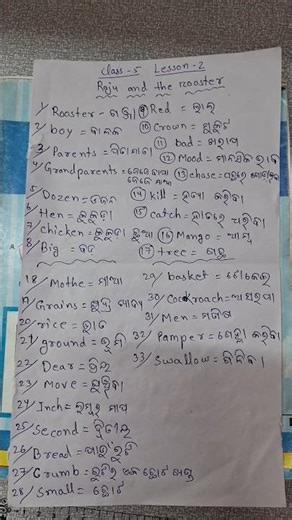 Class-5 Lesson-2
Raju and the Rooster
1/ Rooster = ଗଞ୍ଜା ⑨ Red = ଲାଲ
2/ boy = ବାଳକ ⑩ Crown = ଚୁଳ
3/ Parents = ପିତାମାତା ⑪ bad = ଖରାପ
4/ Grandparents = ଜେଜେବାପା ଜେଜେମାଆ ⑫ Mood = ମାନସିକ ଭାବ
⑬ chase = ପଛରେ ଗୋଡ଼ାଇବା
5/ Dozen = ଡଜନ ⑭ kill = ହତ୍ୟା କରିବା
6/ Hen = କୁକୁଡ଼ା ⑮ catch = ହାତରେ ଧରିବା
7/ Chicken = କୁକୁଡ଼ା ଛୁଆ ⑯ Mango = ଆମ୍ବ
8/ Big = ବଡ ⑰ tree = ଗଛ
18/ Mothe = ମାଆ 29/ basket = ଟୋକେଇ
19/ Grains = ଖୁଦ୍ର 30/ Cockroach = ଅସରପା
20/ rice = ଭାତ 31/ Men = ମଣିଷ
21/ ground = ଭୂମି 32/ Pamper = ଗେହ୍ଲା କରିବା
22/ Dear = ପ୍ରିୟ 33/ Swallow = ଗିଳିବା
23/ Move = ଘୁଞ୍ଚିବା
24/ Inch = ଲମ୍ବର ମାପ
25/ Second = ଦ୍ୱିତୀୟ
26/ Bread = ପାଉଁରୁଟି
27/ Crumb = ରୁଟିର ଏକ ଛୋଟ ଖଣ୍ଡ
28/ Small = ଛୋଟ